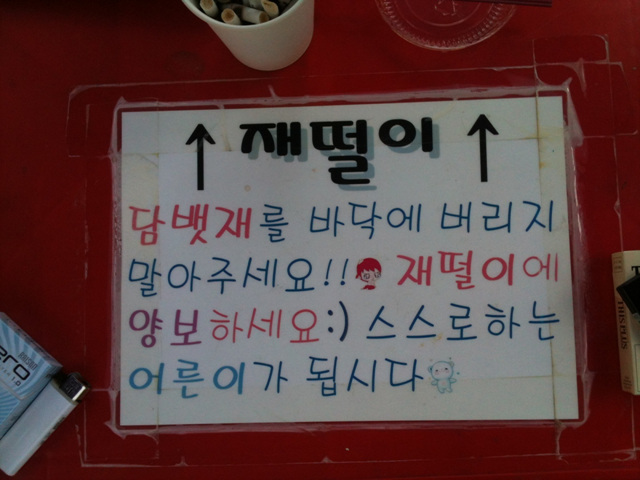 ↑ 재떨이 ↑
담뱃재를 바닥에 버리지
말아주세요!! 재떨이에
양보하세요:) 스스로하는
어른이가 됩시다
THIS PLUS